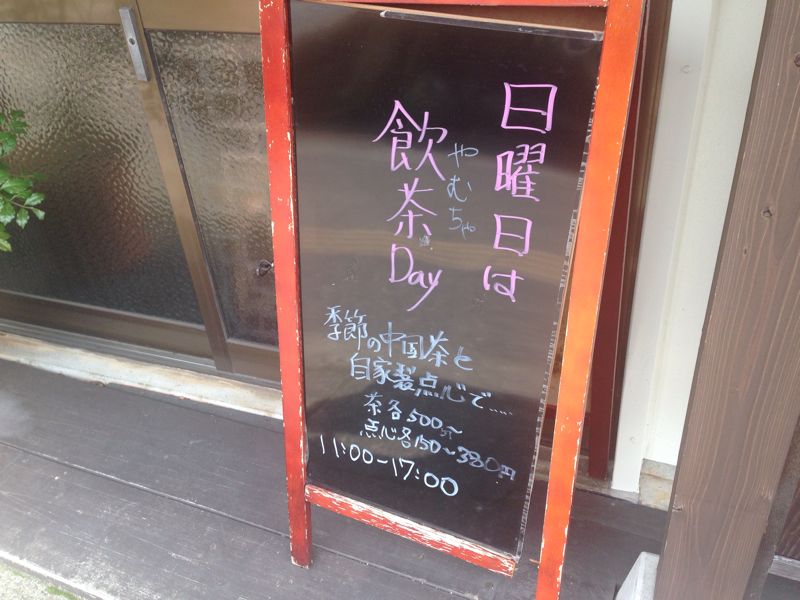 日曜日は
飲茶Day
やむちゃ
季節の中国茶と
自家製点心で……
茶各500〜
点心各150〜380円
11:00-17:00